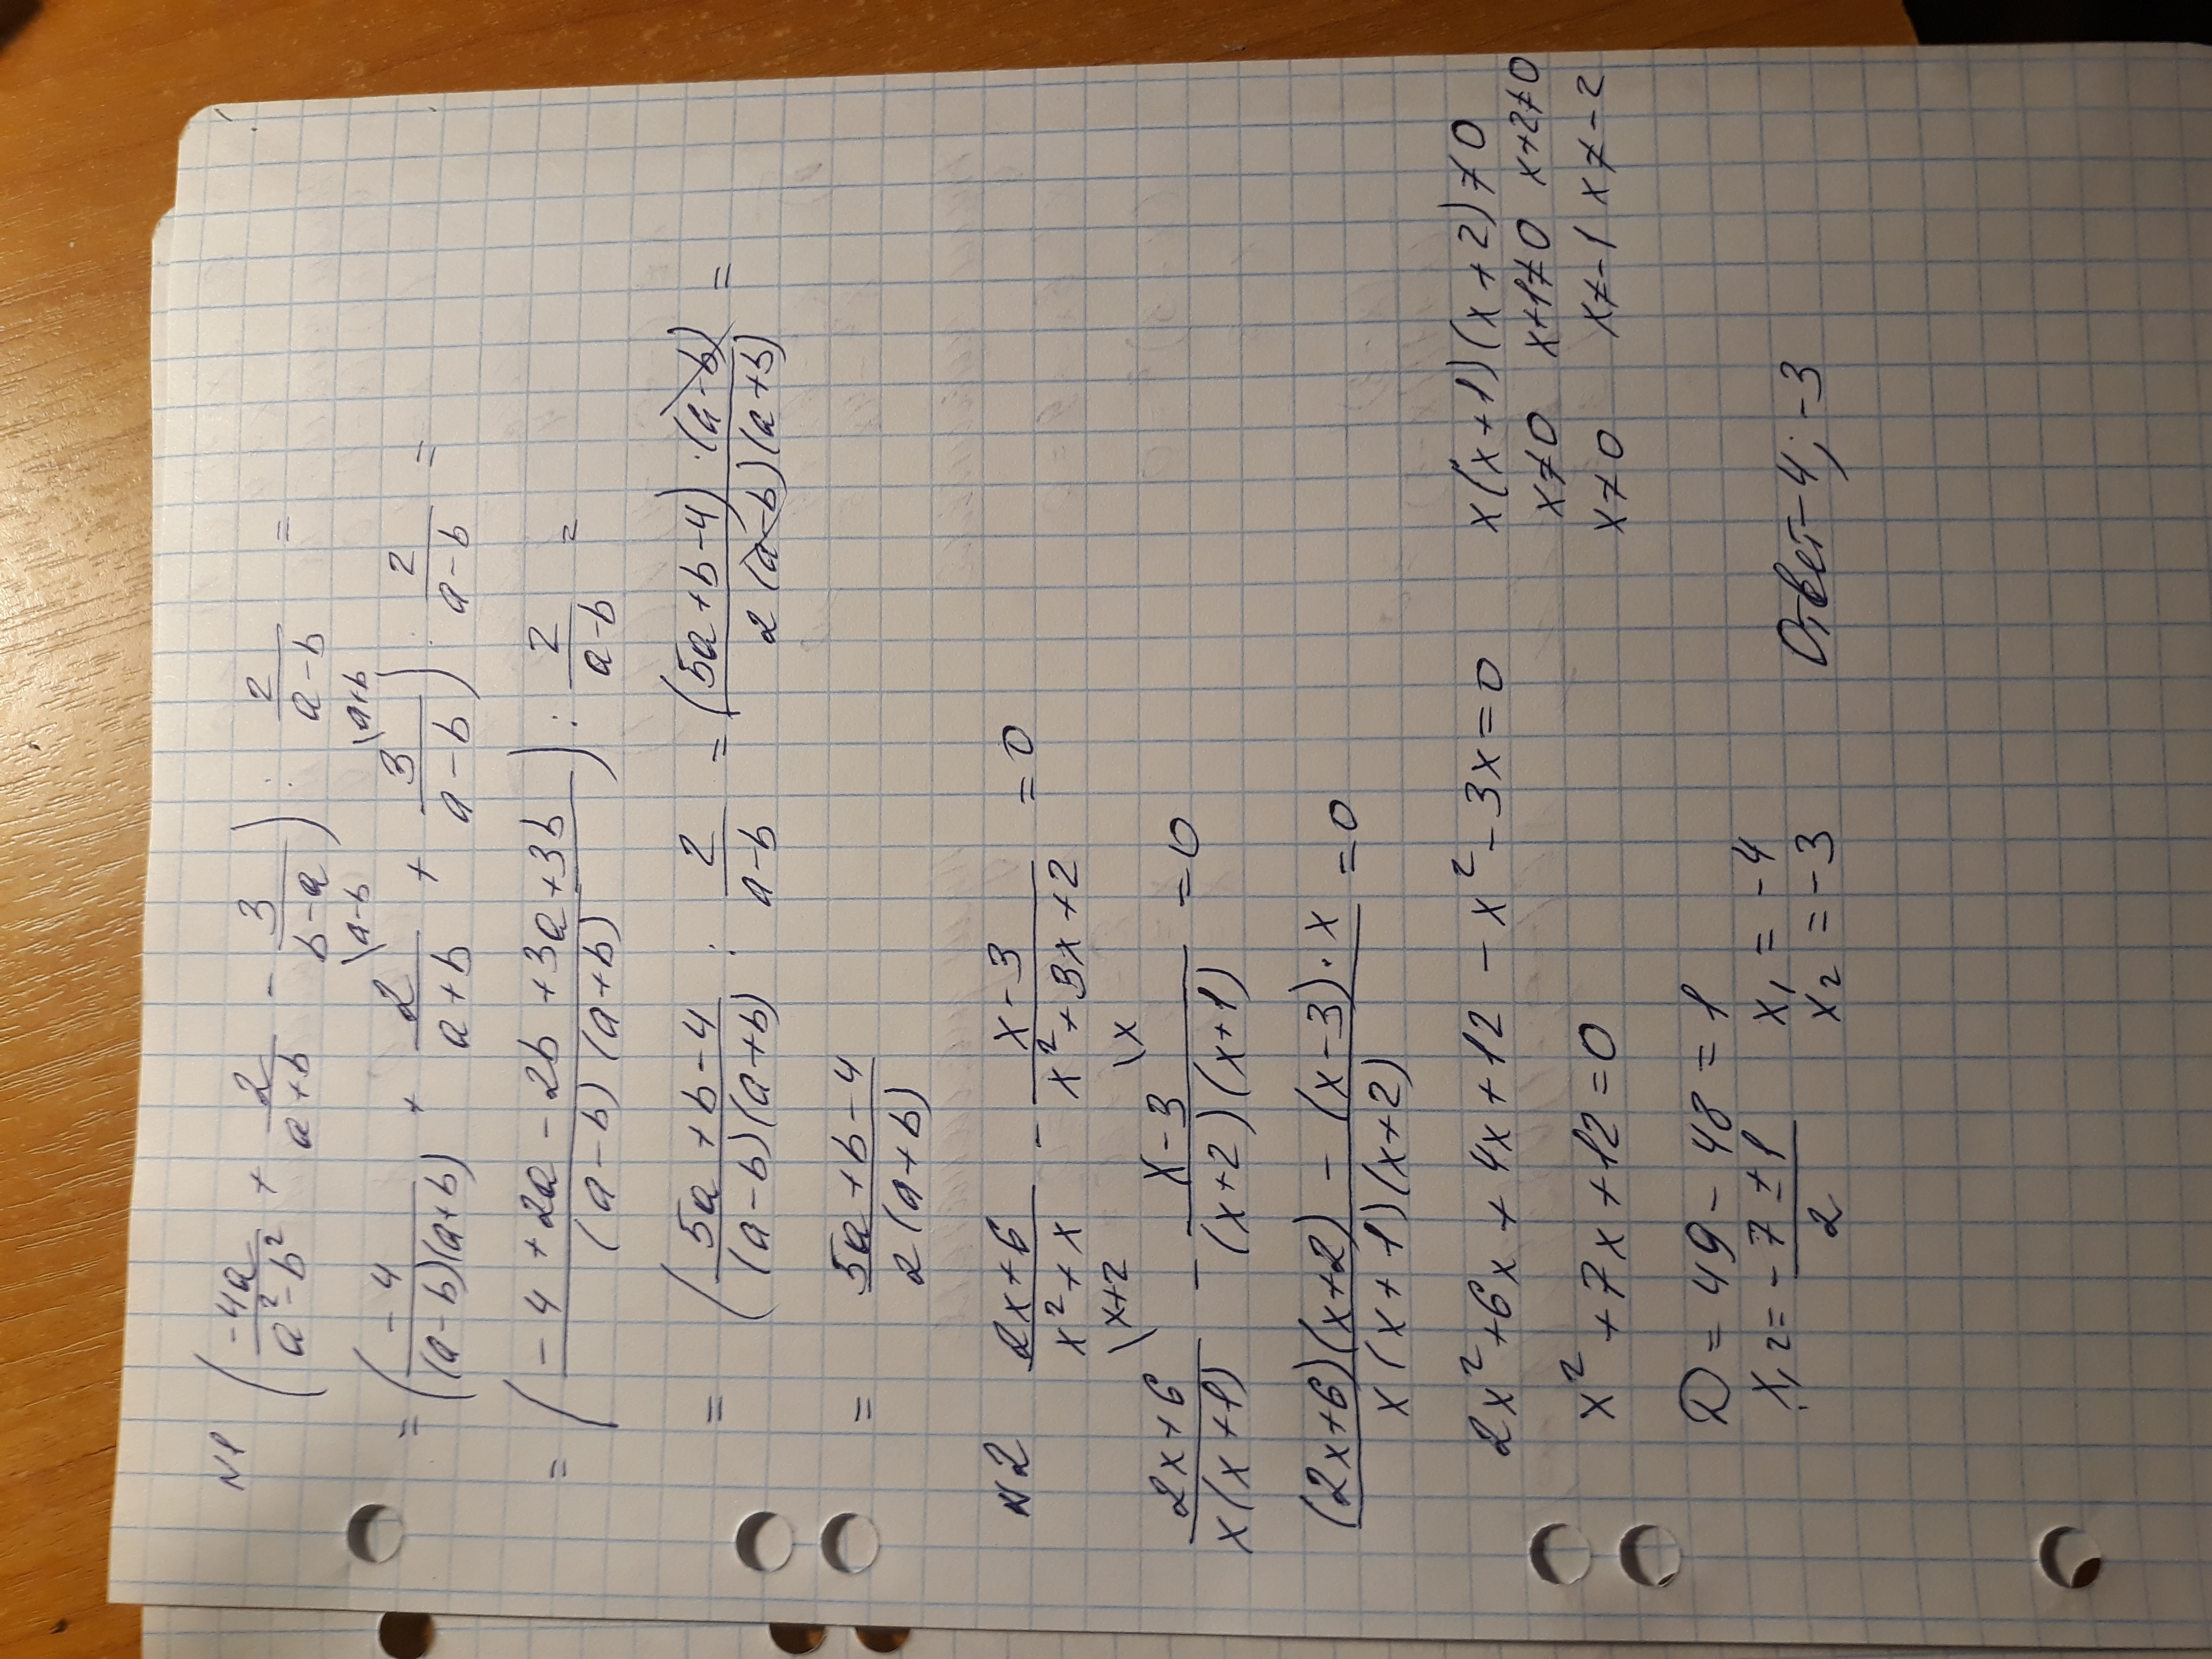 N1 (-4a/(a²-b²) + 2/(a+b) - 3/(b-a)) : 2/(a-b) =
= (-4/((a-b)(a+b)) + 2/(a+b) \a-b + 3/(a-b) \a+b) : 2/(a-b) =
= ((-4+2a-2b+3a+3b)/((a-b)(a+b))) : 2/(a-b) =
= (5a+b-4)/((a-b)(a+b)) : 2/(a-b) = (5a+b-4)·(a-b)/(2(a-b)(a+b)) =
= (5a+b-4)/(2(a+b))
N2 (2x+6)/(x²+x) - (x-3)/(x²+3x+2) = 0
(2x+6)/(x(x+1)) \x+2 - (x-3)/((x+2)(x+1)) \x = 0
((2x+6)(x+2)-(x-3)·x)/(x(x+1)(x+2)) = 0
2x²+6x+4x+12-x²-3x=0 x(x+1)(x+2)≠0
x²+7x+12=0 x≠0 x+1≠0 x+2≠0
x≠0 x≠-1 x≠-2
D=49-48=1
x₁,₂=(-7±1)/2 x₁=-4
x₂=-3
Ответ -4; -3